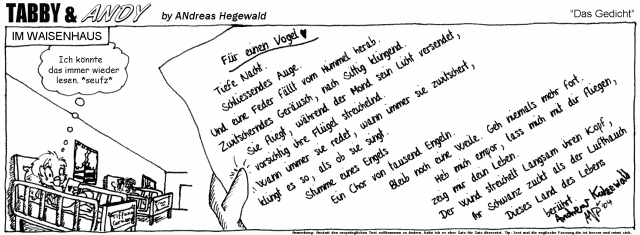 TABBY & ANDY
by ANdreas Hegewald
"Das Gedicht"
IM WAISENHAUS
Ich könnte
das immer wieder
lesen. *seufz*
Für einen Vogel ♥
Tiefe Nacht.
Schliessendes Auge.
Und eine Feder fällt vom Himmel herab.
Zwitscherndes Geräusch, nach Süttig klingend.
Sie fliegt, während der Mond sein Licht versendet,
vorsichtig ihre Flügel streichelnd.
Wann immer sie redet, wann immer sie zwitschert,
klingt es so, als ob sie singt.
Stimme eines Engels
Ein Chor von tausend Engeln.
Bleib noch eine Weile. Geh niemals mehr fort.
Heb mich empor, lass mich mit dir fliegen,
zeig mir dein Leben.
Der Wind streichelt langsam ihren Kopf,
Ihr Schwanz zuckt als der Lufthauch
Dieses Land des Lebens
berührt.
Andreas
04
Tiffany
Anmerkung: Anstatt den ursprünglichen Text vollkommen zu ändern, habe ich es eher Satz für Satz übersetzt. Tip: Lest mal die englische Fassung, die ist besser und reimt sich.